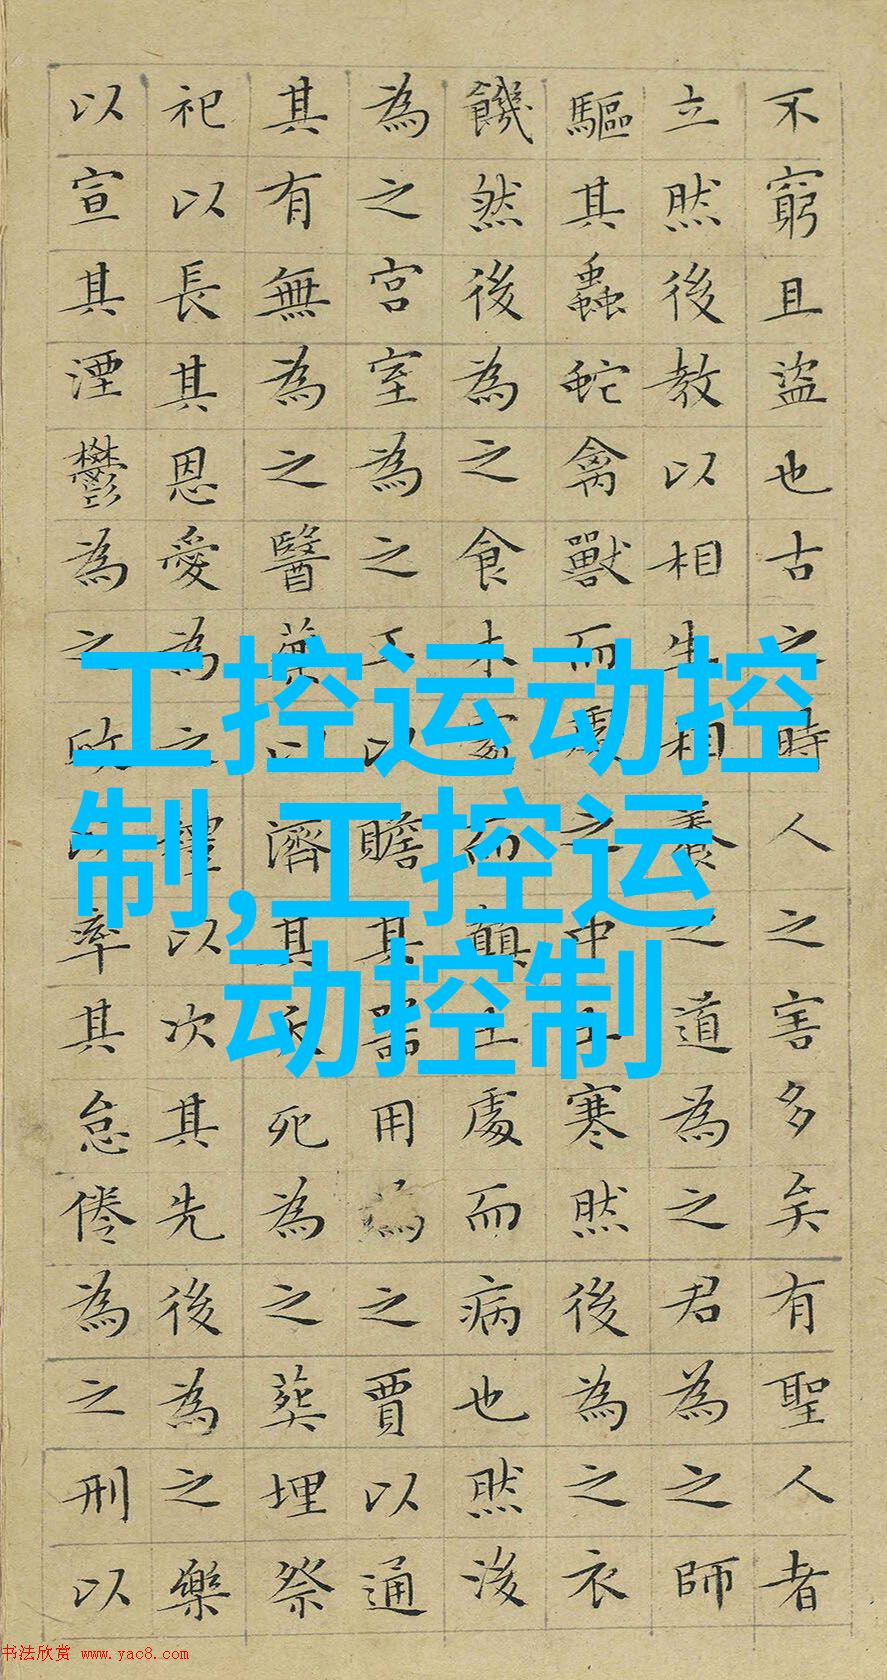 不窮且盜也古之時人之害多矣有聖人者
立然後教以相生相養之道為之君為之師
驅其蟲蛇禽獸而處之中土寒然後為之衣
饑然後為之食木處而顛土處而病也然後
為之宮室為之工以贍其器用為之賈以通
其有無為之醫藥以濟其夭死為之葬埋祭
祀以長其恩愛為之禮以次其先後為之樂
以宣其湮鬱為之政以率其怠倦為之刑以
工控运动控
制,工控运
动控制
书法欣赏 www.yac8.com